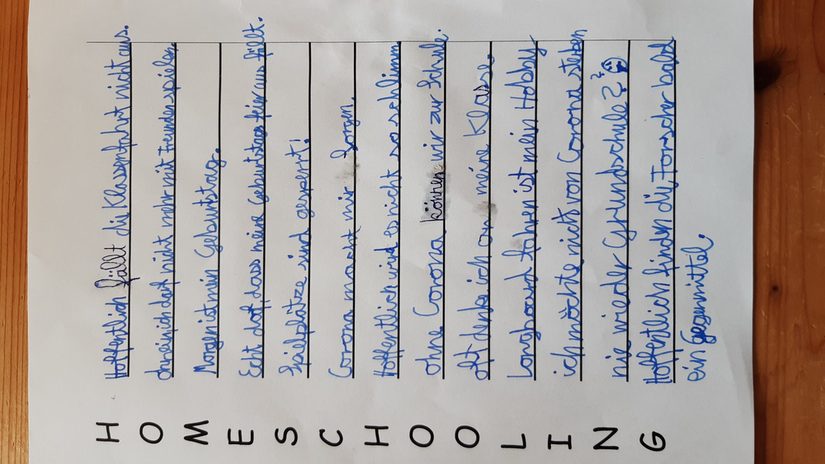 H Hoffentlich fällt die Klassenfahrt nicht aus.
O ich darf nicht mehr mit Freunden spielen
M Morgen ist mein Geburtstag.
E Echt doof, dass meine Geburtstagsfeier aus fällt.
S Spielplätze sind gesperrt!
C Corona macht mir Sorgen.
H Hoffentlich wird es nicht so schlimm
O ohne Corona können wir zur Schule.
O oft denke ich an meine Klasse.
L Longboard fahren ist mein Hobby
I ich möchte nicht von Corona steben
N nie wieder Grundschule??
G Hoffentlich finden die Forscher bald
ein Gegenmittel.